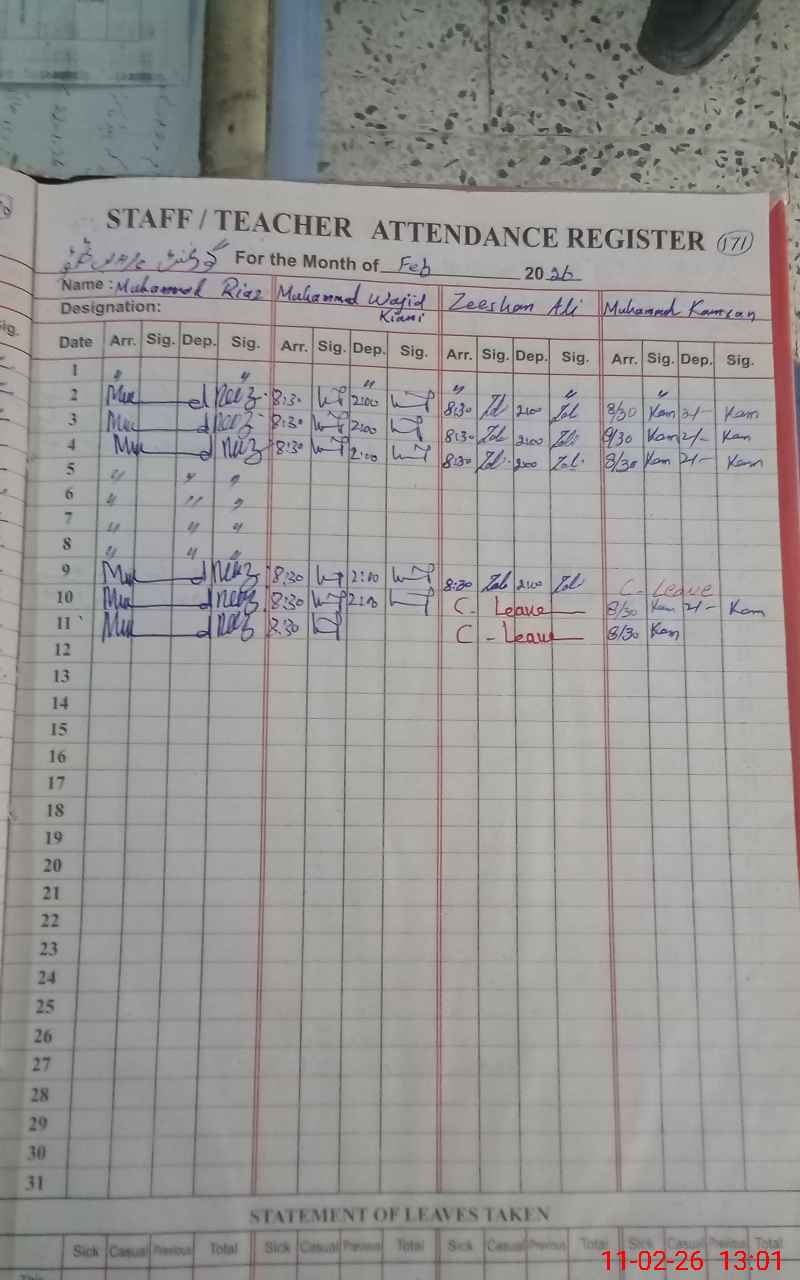 STAFF / TEACHER ATTENDANCE REGISTER 171
For the Month of Feb 2026
Name : Muhammad Riaz Muhammad Wajid Kiani Zeeshan Ali Muhammad Kamran
Designation:
Date Arr. Sig. Dep. Sig. Arr. Sig. Dep. Sig. Arr. Sig. Dep. Sig. Arr. Sig. Dep. Sig.
1 " " " " " "
2 8:30 2:00 8:30 2:00 8/30 Kam 2/- Kam
3 8:30 2:00 8:30 2:00 8/30 Kam 2/- Kam
4 8:30 2:00 8:30 2:00 8/30 Kam 2/- Kam
5 " " "
6 " " "
7 " " "
8 " " "
9 8:30 2:00 8:30 2:00 C- Leave
10 8:30 2:00 C- Leave 8/30 Kam 2/- Kam
11 8:30 C - Leave 8/30 Kam
12
13
14
15
16
17
18
19
20
21
22
23
24
25
26
27
28
29
30
31
STATEMENT OF LEAVES TAKEN
Sick Casual Previous Total Sick Casual Previous Total Sick Casual Previous Total Sick Casual Previous Total
11-02-26 13:01